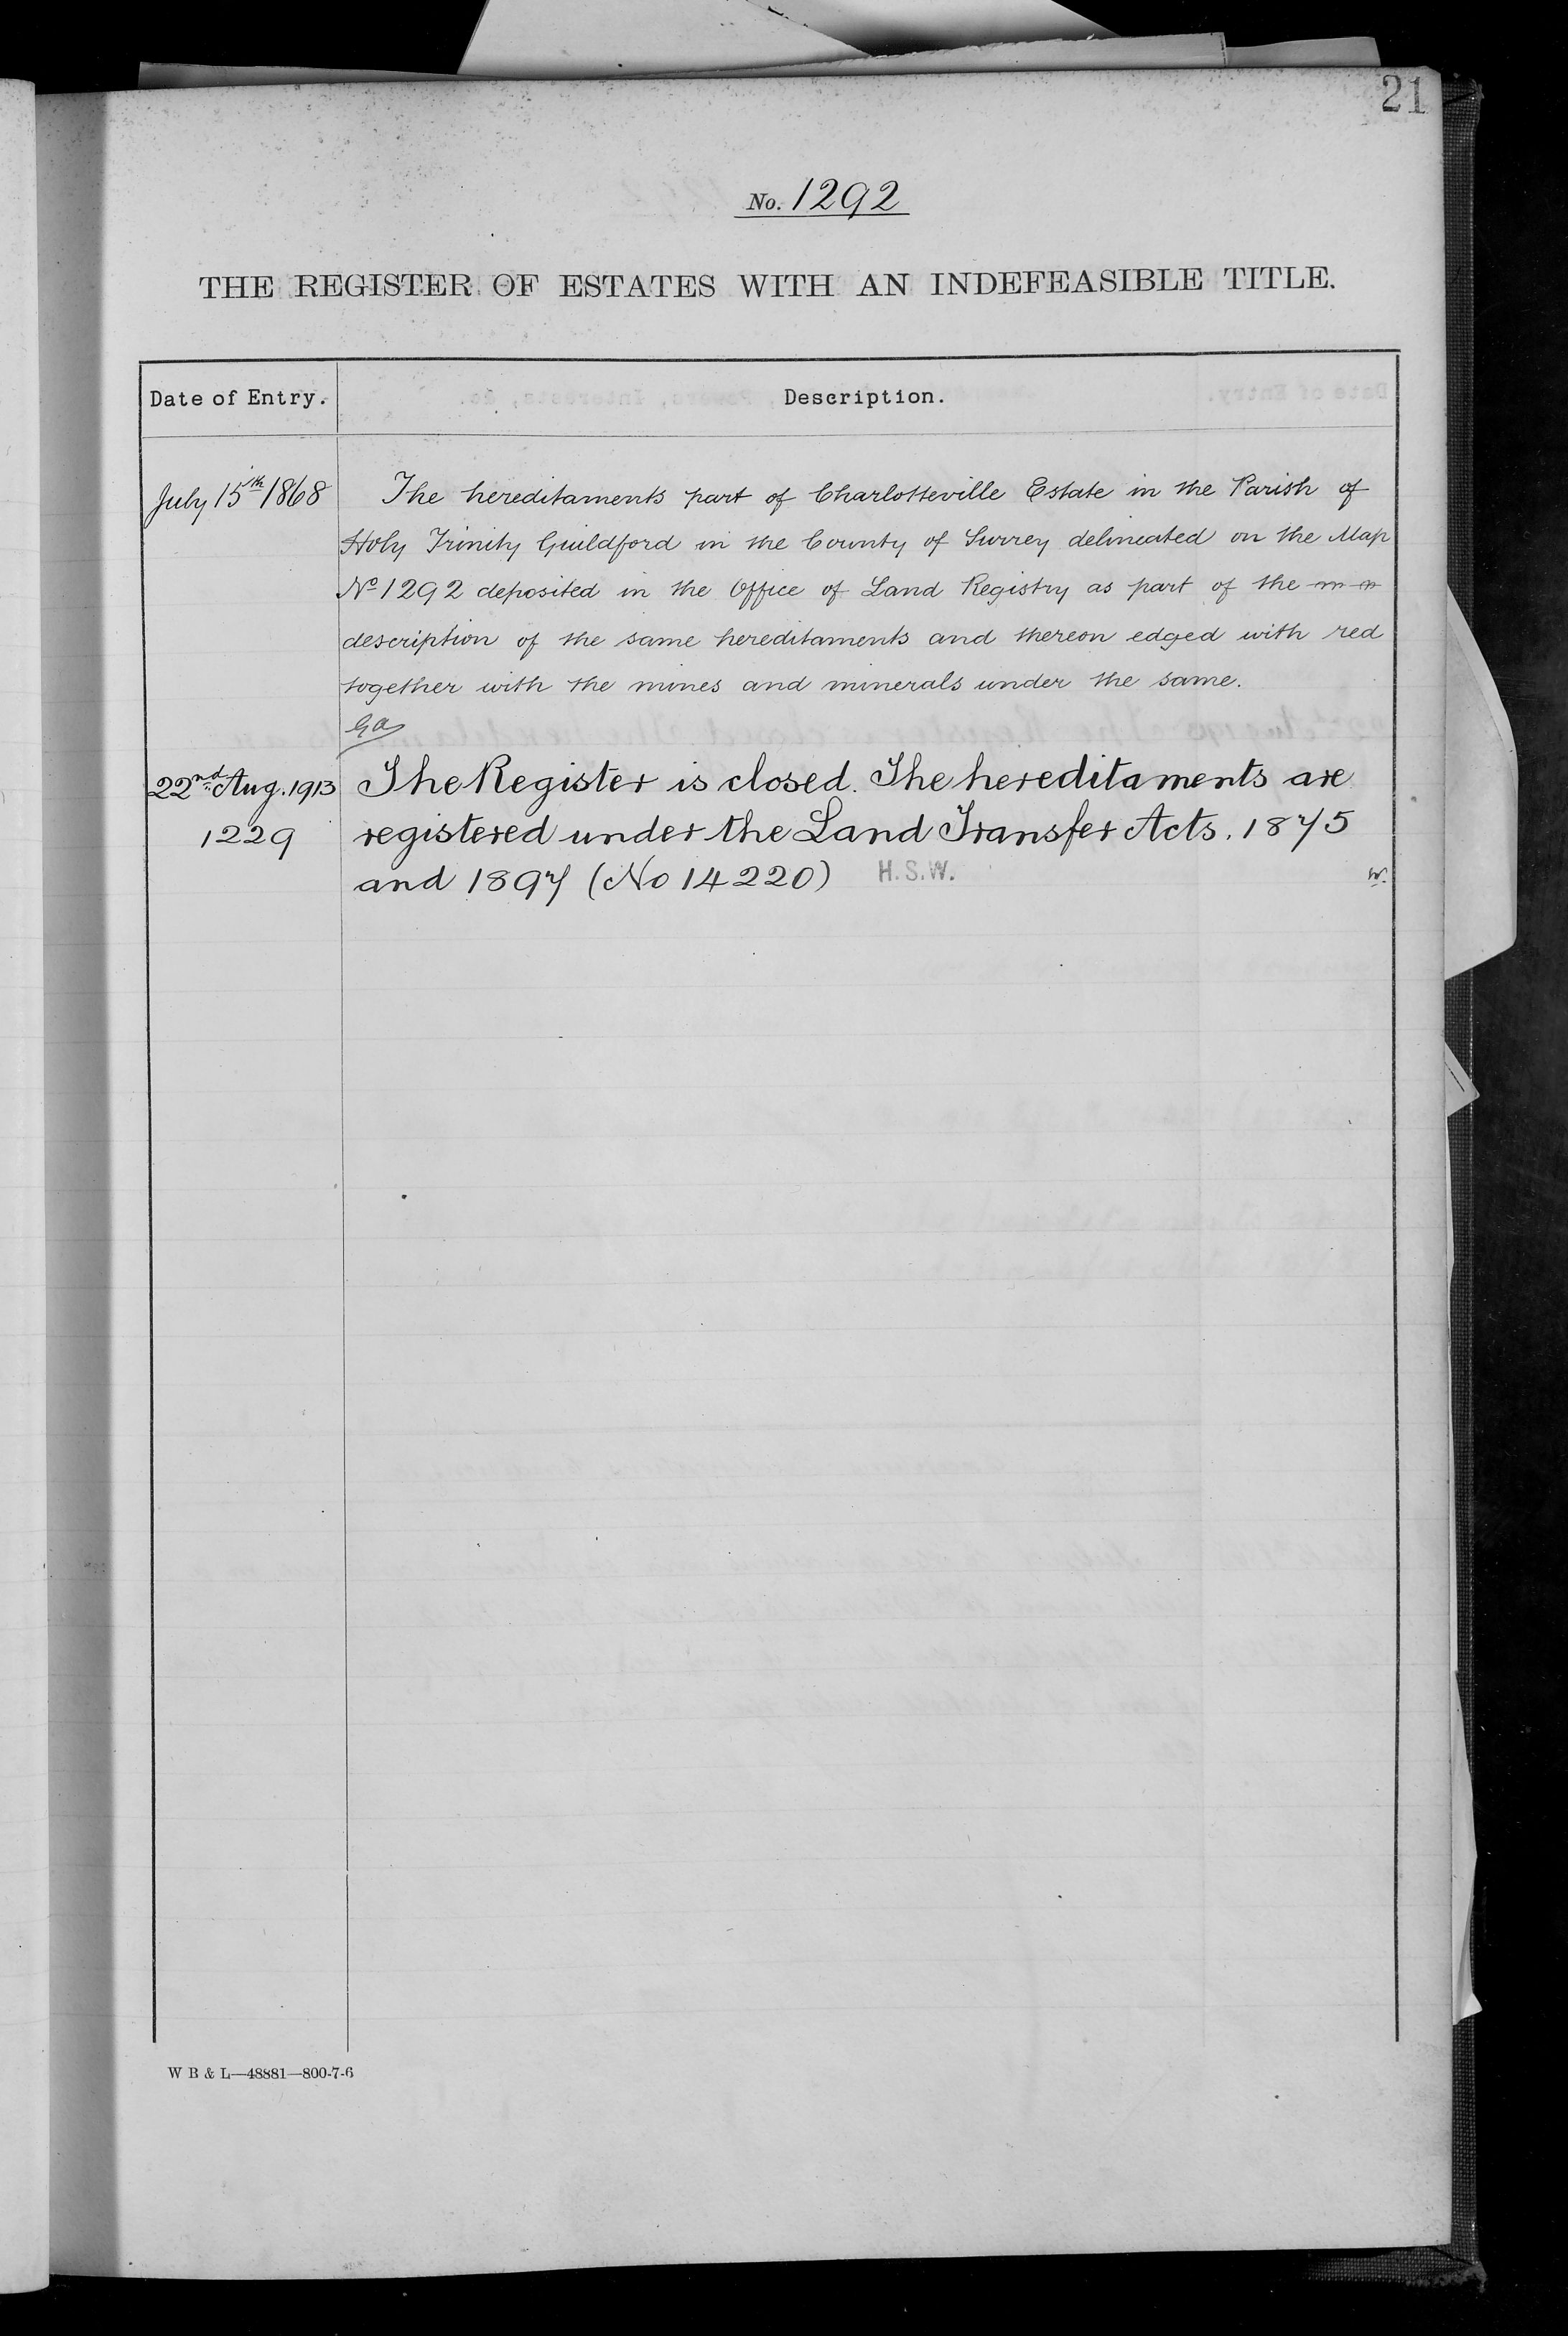 21
No. 1292
THE REGISTER OF ESTATES WITH AN INDEFEASIBLE TITLE.
Date of Entry. Description.
July 15th 1868 The hereditaments part of Charlotteville Estate in the Parish of
Holy Trinity Guildford in the County of Surrey delineated on the Map
No 1292 deposited in the Office of Land Registry as part of the
description of the same hereditaments and thereon edged with red
together with the mines and minerals under the same.
22nd Aug. 1913 The Register is closed. The hereditaments are
1229 registered under the Land Transfer Acts. 1875
and 1897 (No 14220) H.S.W. W.
W B & L—48881—800-7-6